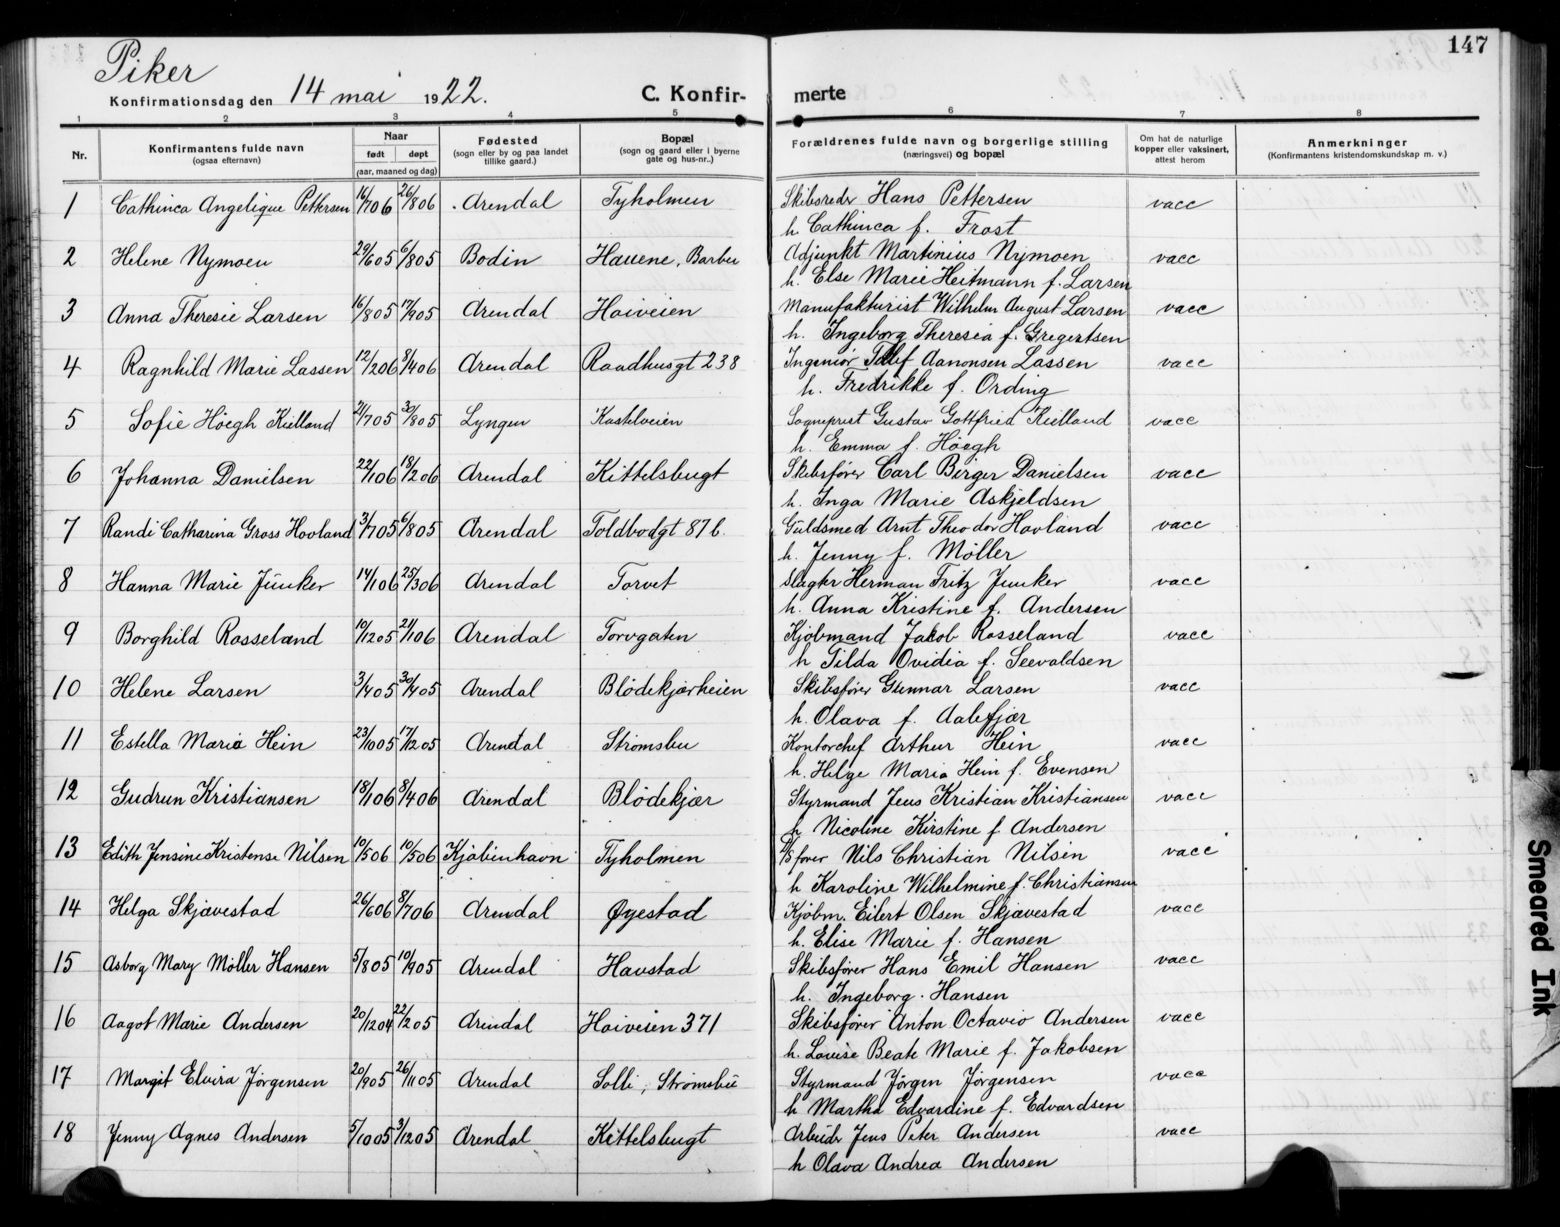 147
Piker
Konfirmationsdag den 14 mai 1922.
C. Konfir-
merte
1 2 3 4 5 6 7 8
Nr.
Konfirmantens fulde navn
(ogsaa efternavn)
Naar
født døpt
(aar, maaned og dag)
Fødested
(sogn eller by og paa landet
tillike gaard.)
Bopæl
(sogn og gaard eller i byerne
gate og hus-nr..)
Forældrenes fulde navn og borgerlige stilling
(næringsvei) og bopæl
Om hat de naturlige
kopper eller vaksinert,
attest herom
Anmerkninger
(Konfirmantens kristendomskundskap m. v.)
1 Cathinca Angelique Pettersen 16/7 06 26/8 06 Arendal Tyholmen Skibsreder Hans Pettersen vacc
h. Cathinca f. Frost
2 Helene Nymoen 29/6 05 6/8 05 Bodin Havene, Barbu Adjunkt Martinius Nymoen vacc
h. Else Marie Heitmann f. Larsen
3 Anna Theresie Larsen 16/8 05 17/9 05 Arendal Hoiveien Manufakturist Wilhelm August Larsen vacc
h. Ingeborg Theresia f. Gregertsen
4 Ragnhild Marie Lassen 12/2 06 8/4 06 Arendal Raadhusgt 238 Ingeniør Tellef Aanonsen Lassen vacc
h. Fredrikke f. Ording
5 Sofie Höegh Kielland 21/7 05 30/8 05 Lyngen Kastelveien Sogneprest Gustav Gottfried Kielland vacc
h. Emma f. Höegh
6 Johanna Danielsen 22/1 06 18/2 06 Arendal Kittelsbugt Skibsfører Carl Birger Danielsen vacc
h. Inga Marie Askjeldsen
7 Randi Catharina Gross Hovland 3/7 05 6/8 05 Arendal Toldbodgt 87 b. Guldsmed Arnt Theodor Hovland vacc
h. Jenny f. Møller
8 Hanna Marie Junker 14/1 06 25/3 06 Arendal Torvet Slagter Herman Fritz Junker vacc
h. Anna Kristine f. Andersen
9 Borghild Rosseland 10/12 05 21/1 06 Arendal Torvgaten Kjøbmand Jakob Rosseland vacc
h Tilda Ovidia f. Seevaldsen
10 Helene Larsen 3/4 05 30/4 05 Arendal Blödekjærheien Skibsfører Gunnar Larsen vacc
h. Olava f. Aalefjær
11 Estella Maria Hein 23/10 05 17/12 05 Arendal Strømsbu Kontorchef Arthur Hein vacc
h. Helge Maria Hein f. Evensen
12 Gudrun Kristiansen 18/1 06 8/4 06 Arendal Blödekjær Styrmand Jens Kristian Kristiansen vacc
h Nicoline Kirstine f Andersen
13 Edith Jensine Kristense Nilsen 10/5 06 10/5 06 Kjøbenhavn Tyholmen fører Nils Christian Nilsen vacc
h Karoline Wilhelmine f. Christiansen
14 Helga Skjævestad 26/6 06 8/7 06 Arendal Øyestad Kjøbm. Eilert Olsen Skjævestad vacc
h. Elise Marie f. Hansen
15 Asborg Mary Møller Hansen 5/8 05 10/9 05 Arendal Havstad Skibsfører Hans Emil Hansen vacc
h. Ingeborg. Hansen
16 Aagot Marie Andersen 20/12 04 22/2 05 Arendal Hoiveien 371 Skibsfører Anton Octavio Andersen vacc
h. Louise Beate Marie f. Jakobsen
17 Margit Elvira Jörgensen 20/9 05 26/11 05 Arendal Solli, Strømsbu Styrmand Jörgen Jörgensen vacc
h Martha Edvardine f. Edvardsen
18 Jenny Agnes Andersen 5/10 05 3/12 05 Arendal Kittelsbugt Arbeider Jens Peter Andersen vacc
h Olava Andrea Andersen
Smeared Ink